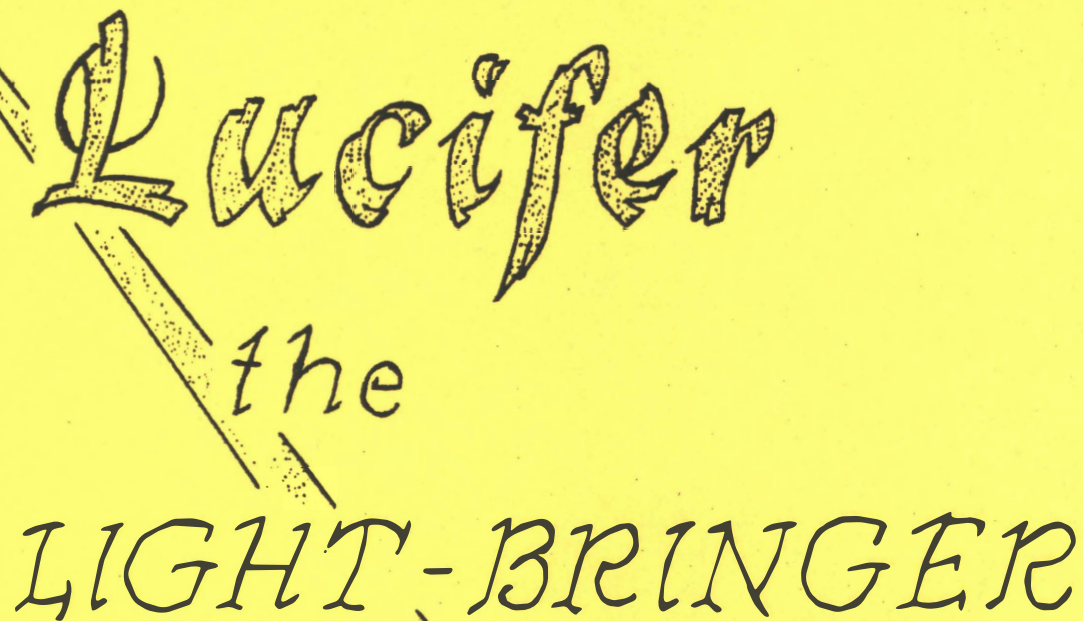 Lucifer
the
LIGHT-BRINGER